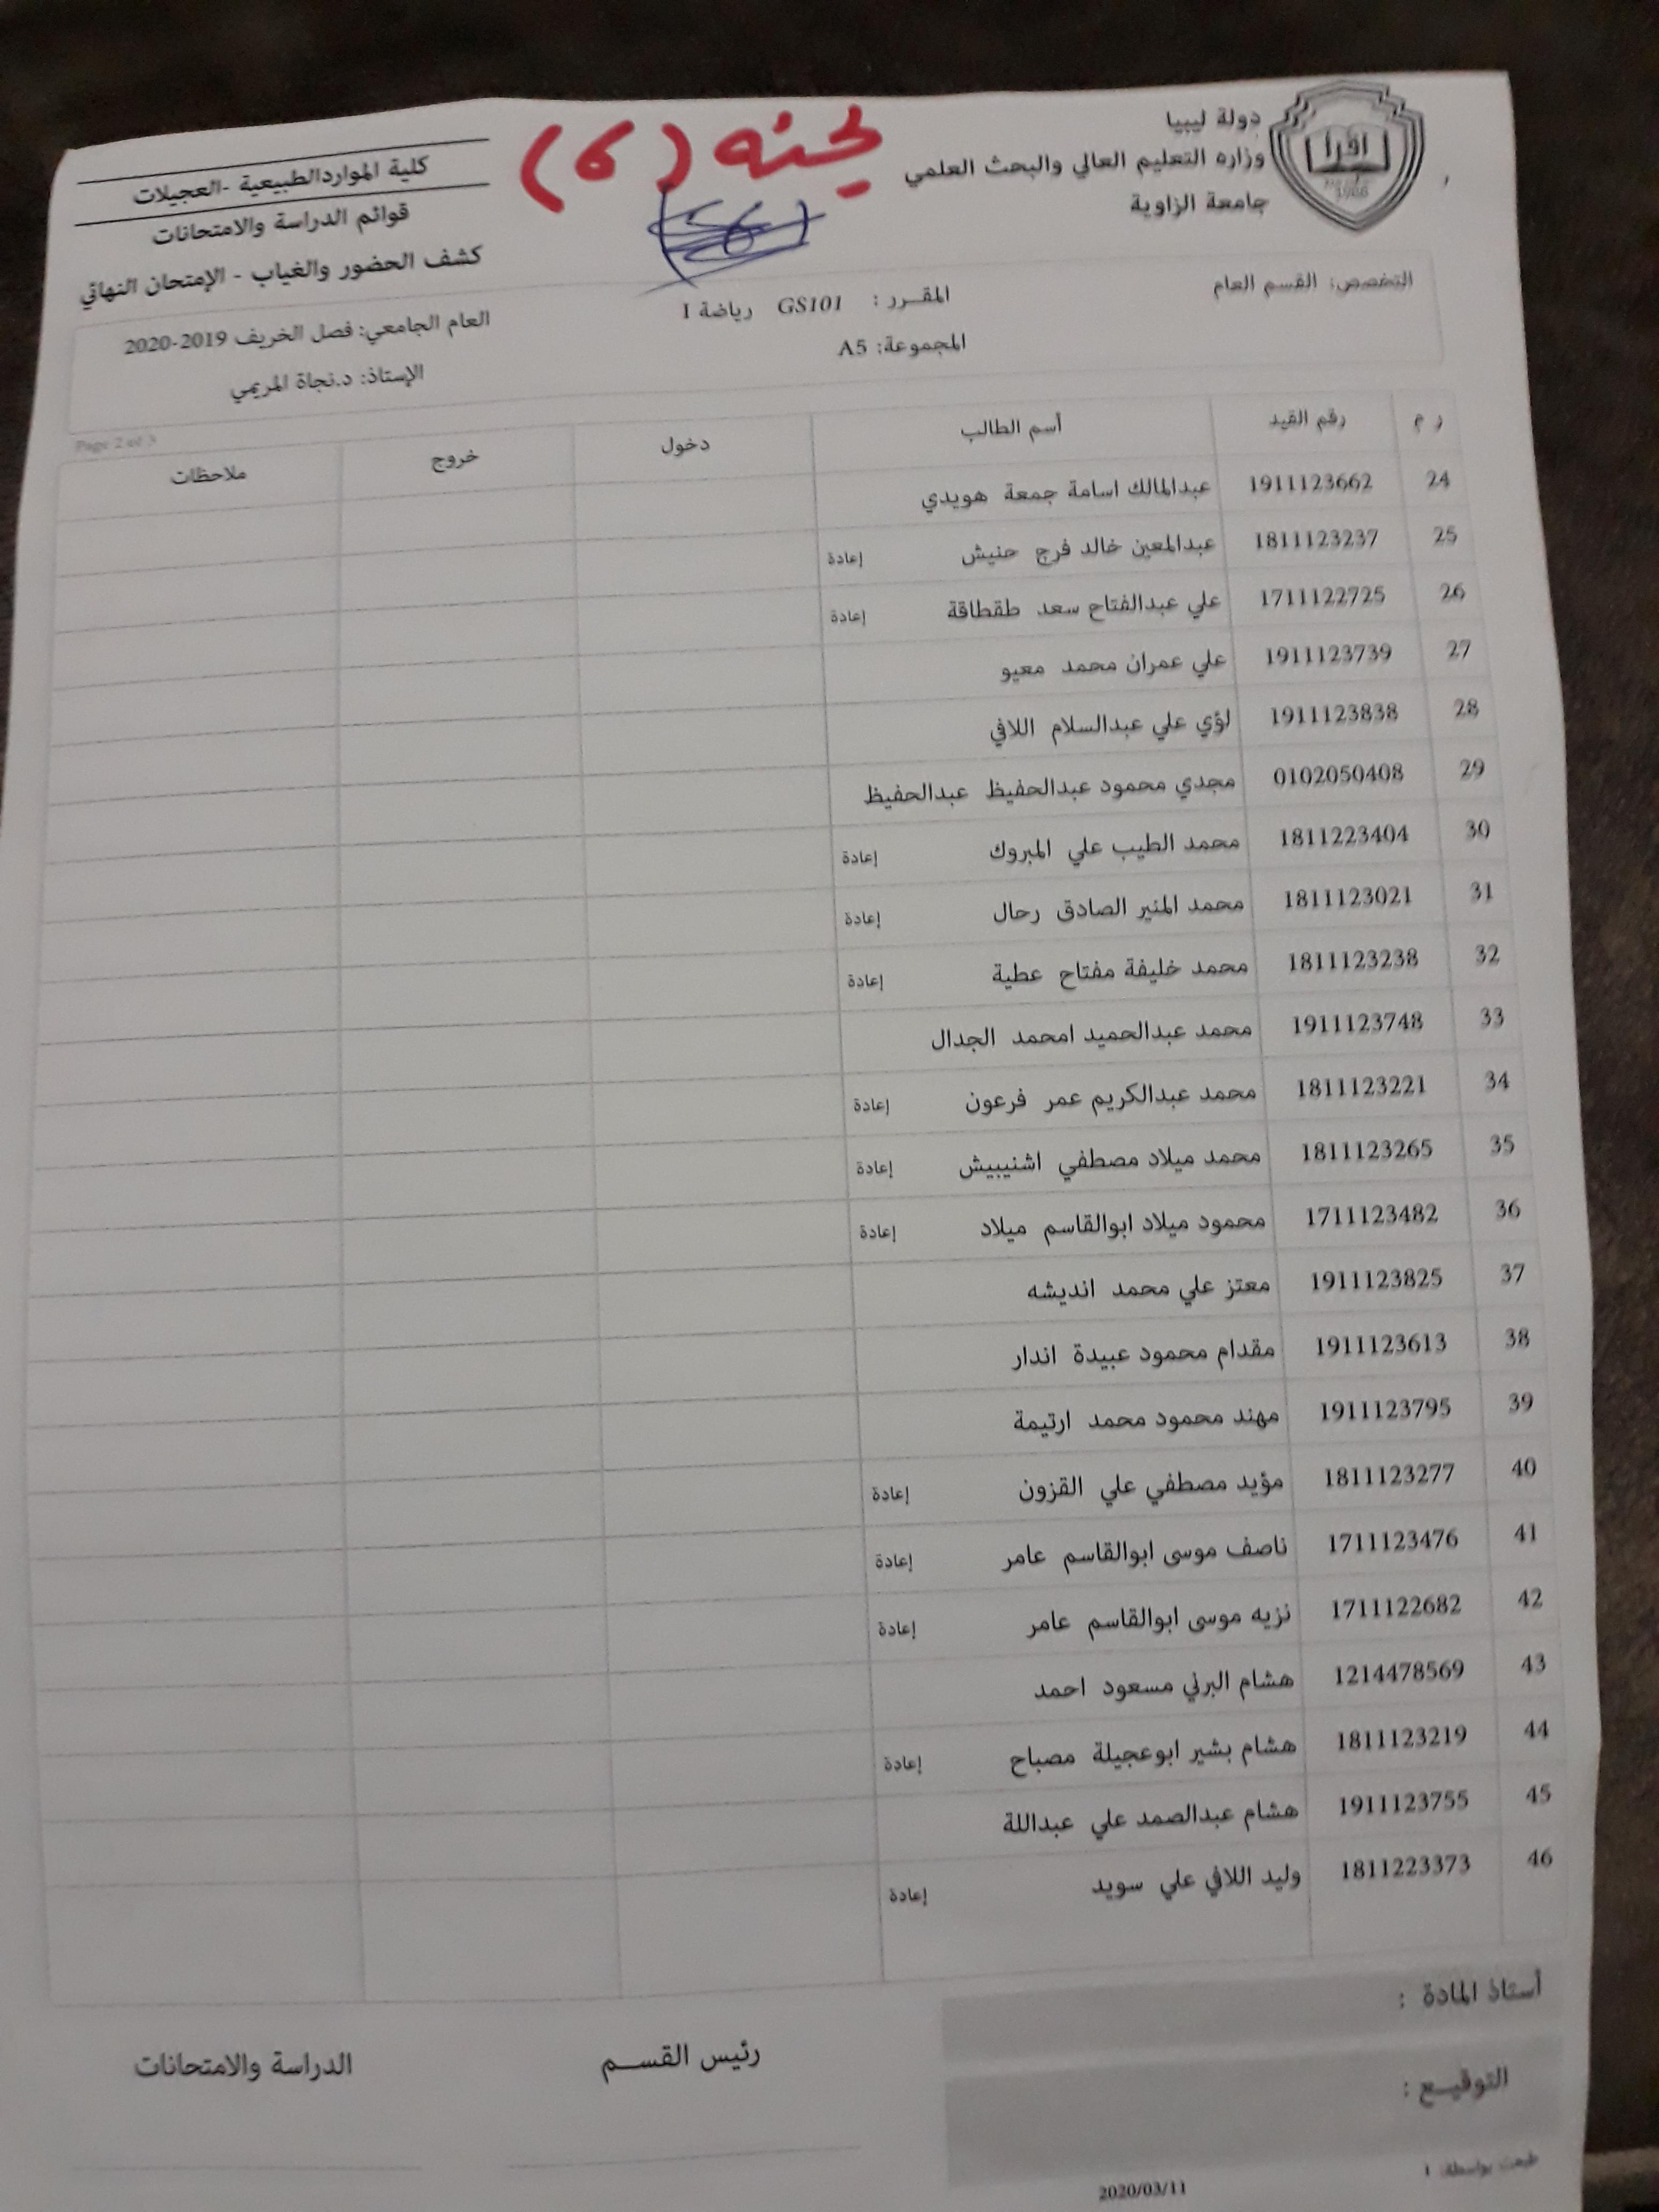 دولة ليبيا
وزاره التعليم العالي والبحث العلمي
جامعة الزاوية
اقرأ
1988
لجنه (6)
كلية المواردالطبيعية -العجيلات
قوائم الدراسة والامتحانات
كشف الحضور والغياب - الإمتحان النهائي
التخصص: القسم العام
المقـــرر : GS101 رياضة I
المجموعة: A5
العام الجامعي: فصل الخريف 2019-2020
الإستاذ: د.نجاة المريمي
Page 2 of 3
ر م رقم القيد أسم الطالب دخول خروج ملاحظات
24 1911123662 عبدالمالك اسامة جمعة هويدي
25 1811123237 عبدالمعين خالد فرج حنيش إعادة
26 1711122725 علي عبدالفتاح سعد طقطاقة إعادة
27 1911123739 علي عمران محمد معيو
28 1911123838 لؤي علي عبدالسلام اللافي
29 0102050408 مجدي محمود عبدالحفيظ عبدالحفيظ
30 1811223404 محمد الطيب علي المبروك إعادة
31 1811123021 محمد المنير الصادق رحال إعادة
32 1811123238 محمد خليفة مفتاح عطية إعادة
33 1911123748 محمد عبدالحميد امحمد الجدال
34 1811123221 محمد عبدالكريم عمر فرعون إعادة
35 1811123265 محمد ميلاد مصطفي اشنيبيش إعادة
36 1711123482 محمود ميلاد ابوالقاسم ميلاد إعادة
37 1911123825 معتز علي محمد انديشه
38 1911123613 مقدام محمود عبيدة اندار
39 1911123795 مهند محمود محمد ارتيمة
40 1811123277 مؤيد مصطفي علي القزون إعادة
41 1711123476 ناصف موسى ابوالقاسم عامر إعادة
42 1711122682 نزيه موسى ابوالقاسم عامر إعادة
43 1214478569 هشام البرني مسعود احمد
44 1811123219 هشام بشير ابوعجيلة مصباح إعادة
45 1911123755 هشام عبدالصمد علي عبداللة
46 1811223373 وليد اللافي علي سويد إعادة
أستاذ المادة :
التوقيـــع :
رئيس القســـم
الدراسة والامتحانات
طبعت بواسطة: 1
2020/03/11